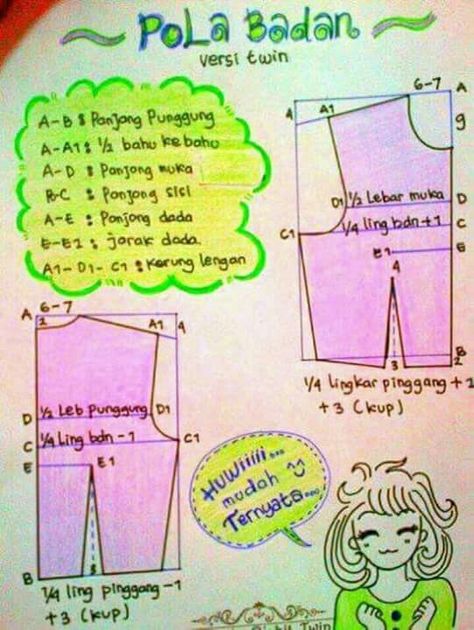 PoLa Badan
versi twin
A-B : Panjang Punggung
A-A1 : ½ bahu ke bahu
A-D : Panjang muka
B-C : Panjang sisi
A-E : Panjang dada
E-E1 : jarak dada.
A1-D1-C1 : Kerung lengan
6-7
A
A1
4
9
D1 ½ Lebar muka D
C1 ¼ ling bdn+1 C
E1 E
4
3
B
2
¼ lingkar pinggang +1
+3 (kup)
6-7
A
2
A1
4
D ½ Leb punggung D1
C ¼ Ling bdn - 1 C1
E E1
B
3
¼ ling pinggang -1
+3 (kup)
HUWIIIII...
mudah
Ternyata...
Twin